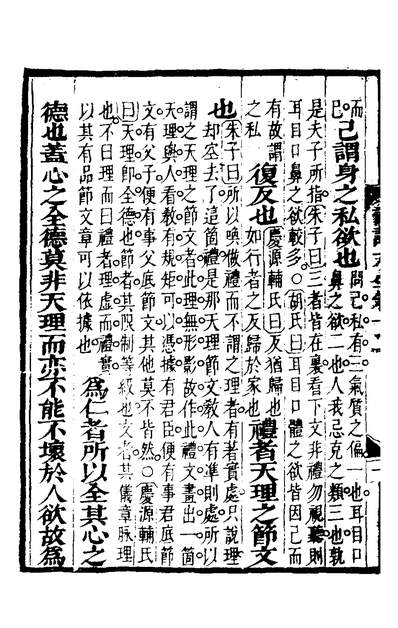 而
已
己謂身之私欲也
問己私有三氣質之偏一也耳目口
鼻之欲二也人我忌克之類三也孰
是夫子所指朱子曰三者皆在裏看下文非禮勿視聽則
耳目口鼻之欲較多○胡氏曰耳目口體之欲皆因己而
有故謂
之私
復反也
慶源輔氏曰反猶歸也
如行者之反歸於家也
禮者天理之節文
也
朱子曰所以喚做禮而不謂之理者有著實處只說理
却空去了這箇禮是那天理節文教人有準則處所以
謂之天理之節文者此理無形影故作此禮文畫出一箇
天理與人看教有規矩可以憑據有君臣便有事君底節
文有父子便有事父底節文其他莫不皆然○慶源輔氏
曰天理即全德也節者其限制等級也文者其儀章脉理
也不曰理而曰禮者理虛而禮實
以其有品節文章可以依據也
為仁者所以全其心之
德也蓋心之全德莫非天理而亦不能不壞於人欲故為